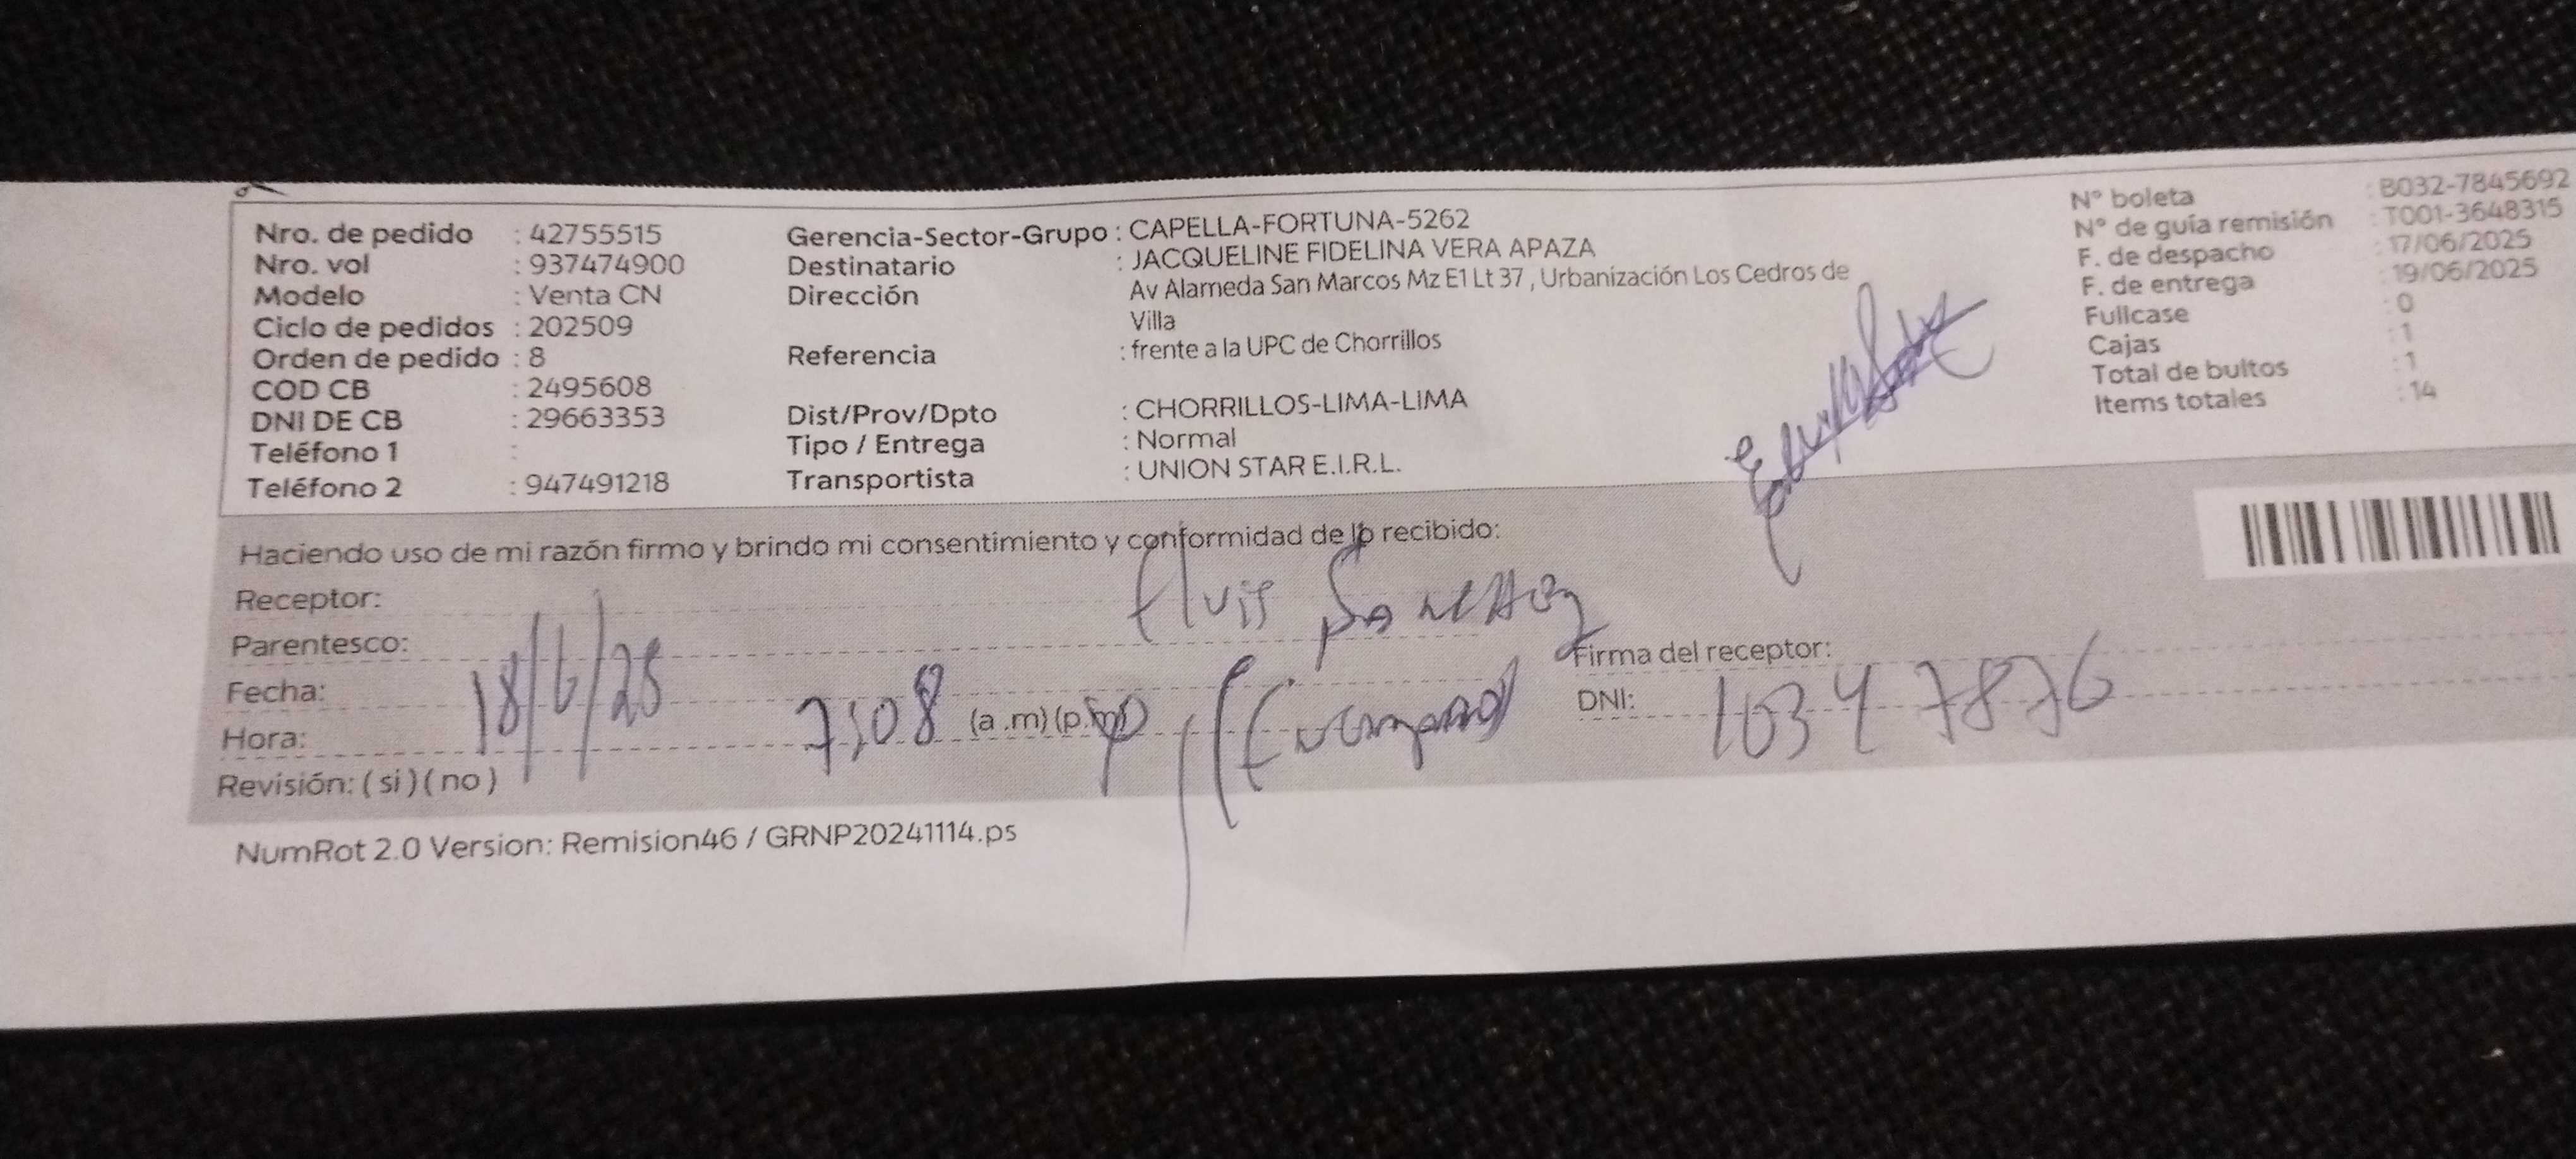 Nro. de pedido : 42755515
Nro. vol : 937474900
Modelo : Venta CN
Ciclo de pedidos : 202509
Orden de pedido : 8
COD CB : 2495608
DNI DE CB : 29663353
Teléfono 1 :
Teléfono 2 : 947491218
Gerencia-Sector-Grupo : CAPELLA-FORTUNA-5262
Destinatario : JACQUELINE FIDELINA VERA APAZA
Dirección Av Alameda San Marcos Mz E1 Lt 37 , Urbanización Los Cedros de
Villa
Referencia : frente a la UPC de Chorrillos
Dist/Prov/Dpto : CHORRILLOS-LIMA-LIMA
Tipo / Entrega : Normal
Transportista : UNION STAR E.I.R.L.
N° boleta : B032-7845692
N° de guía remisión : T001-3648315
F. de despacho : 17/06/2025
F. de entrega : 19/06/2025
Fullcase : 0
Cajas : 1
Total de bultos : 1
Items totales : 14
Haciendo uso de mi razón firmo y brindo mi consentimiento y conformidad de lo recibido:
Receptor: Elvis
Parentesco:
Firma del receptor:
Fecha: 18/6/25
DNI: 10347876
Hora: 7:08 (a .m) (p.m)
Revisión: ( si ) ( no )
NumRot 2.0 Version: Remision46 / GRNP20241114.ps